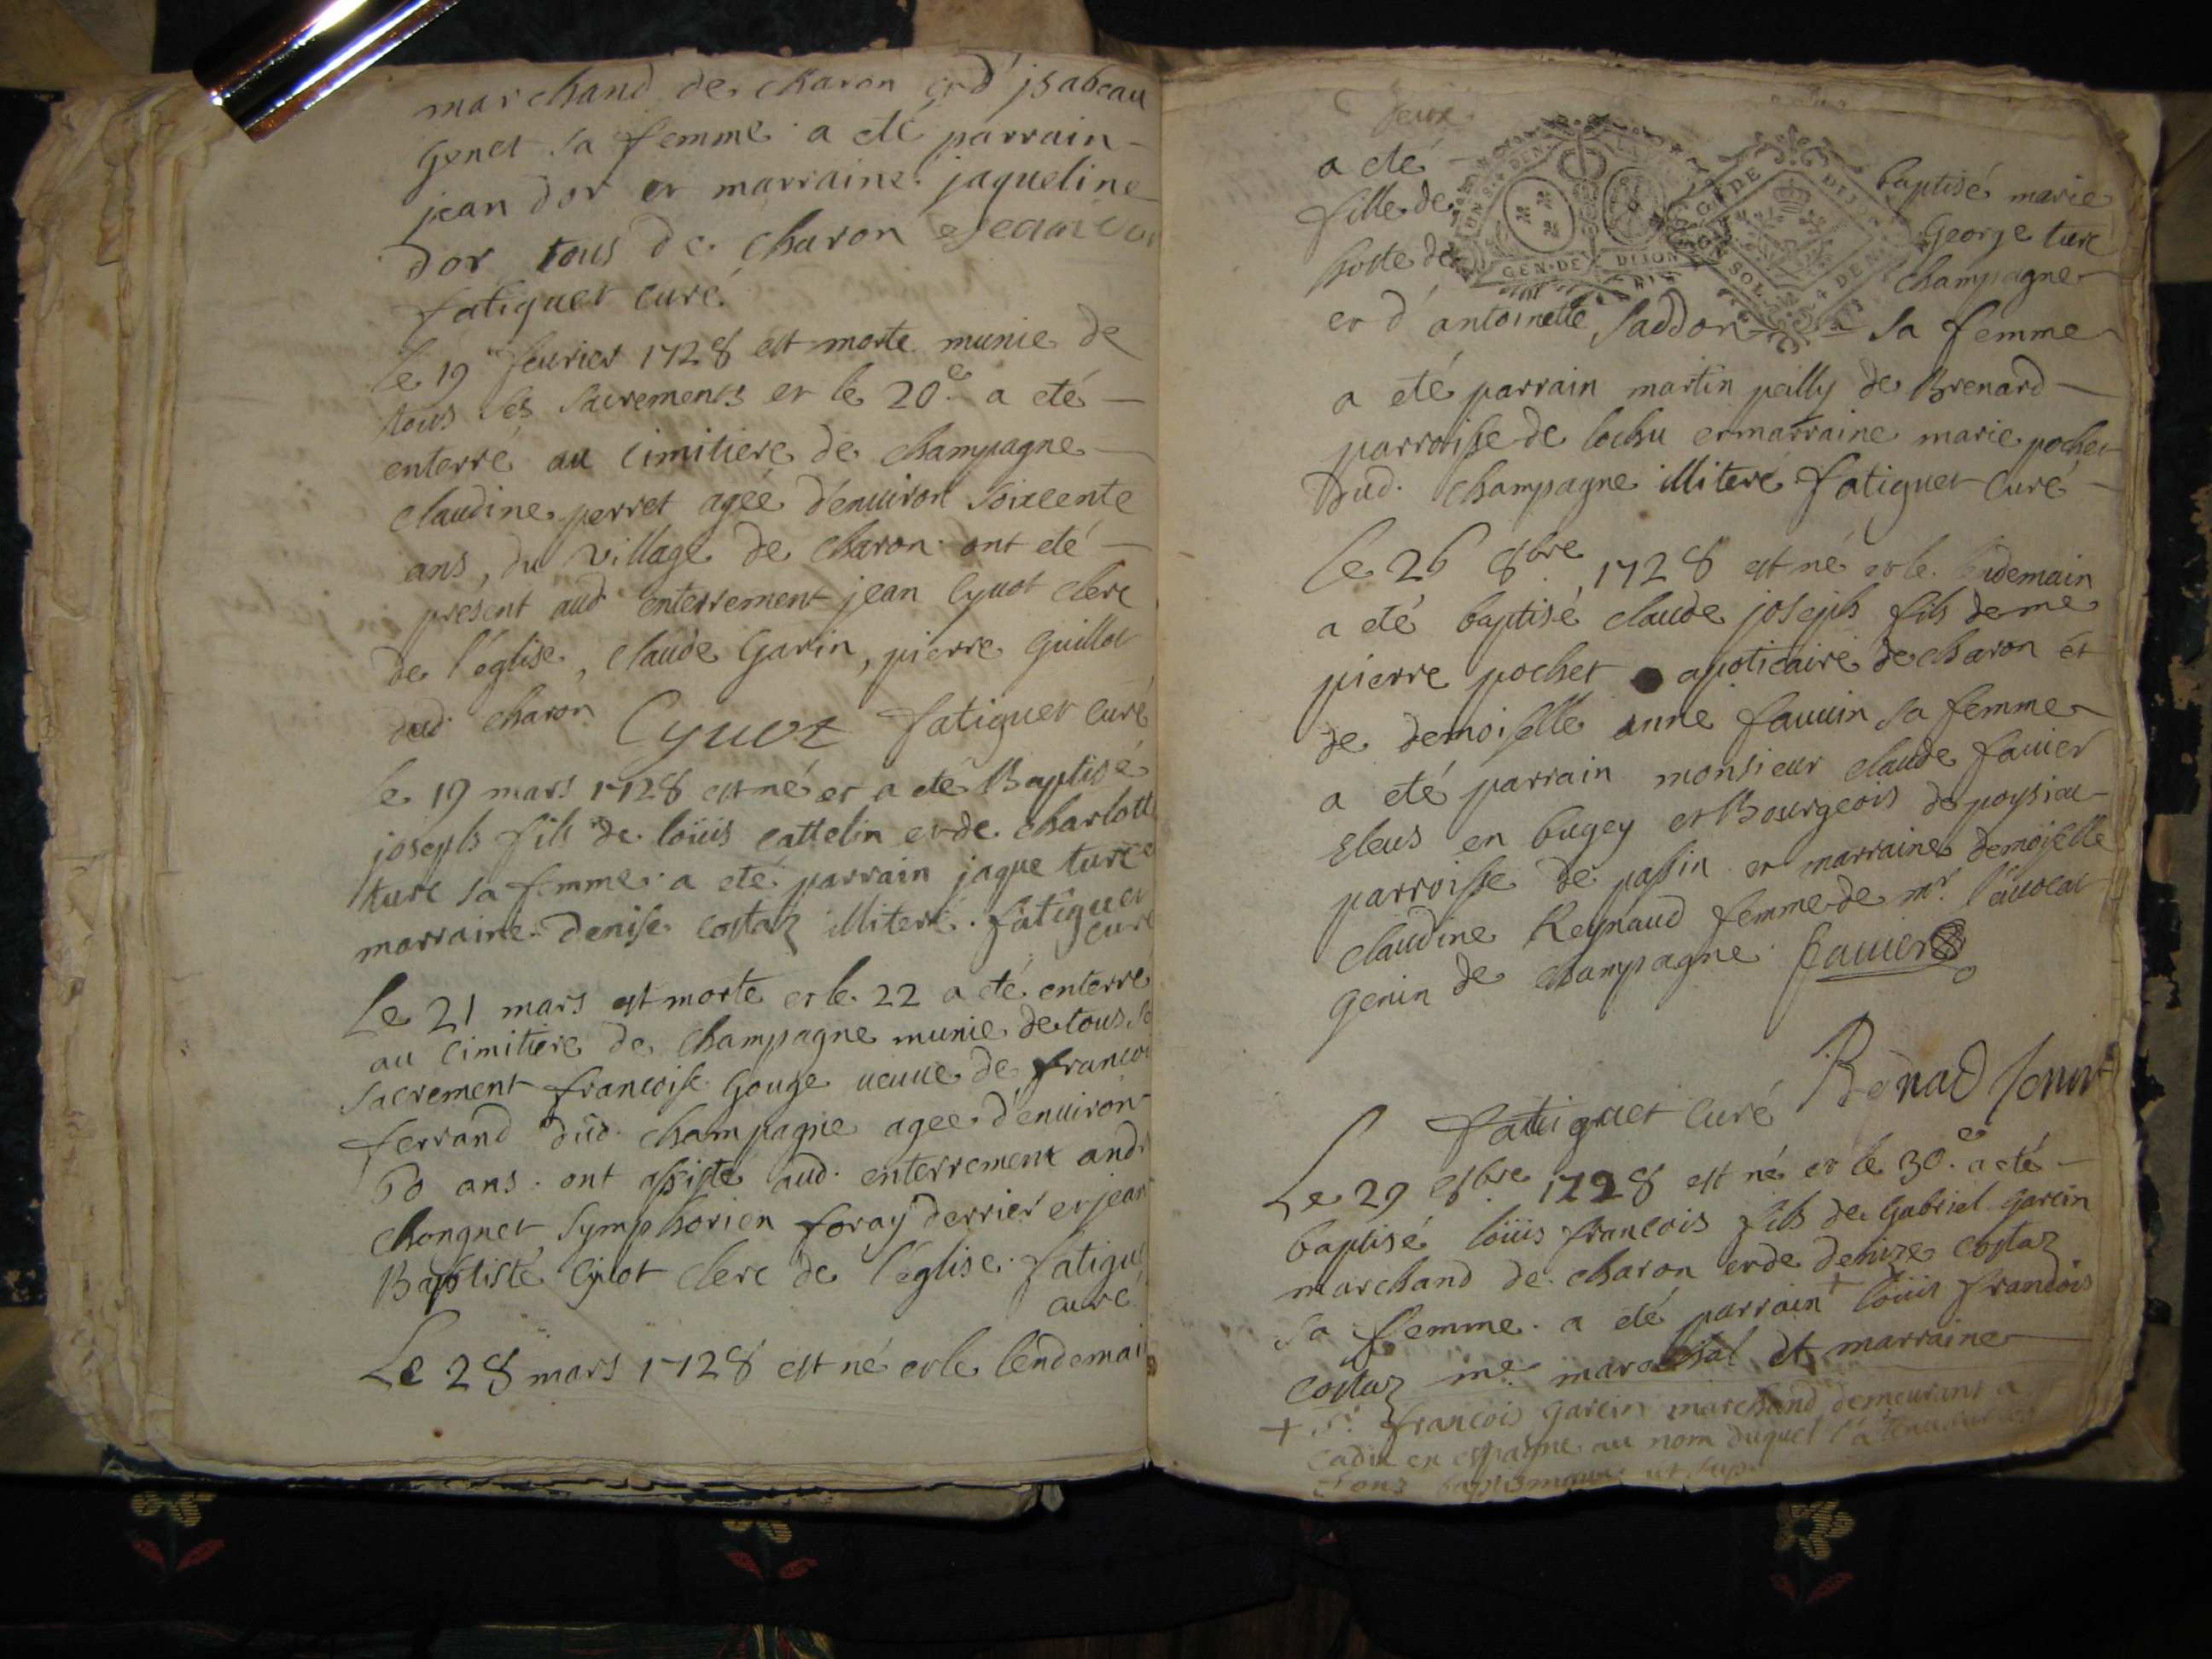 marchand de charon et d'jsabeau
genet sa femme a eté parrain
jean dor et marraine jaqueline
dor tous de charon
fatiguet curé.
le 19 feurier 1728 est morte munie de
tous les sacrements et le 20e a eté
enterré au cimitiere de champagne
claudine perret agée d'enuiron soixcente
ans, du village de charon ont eté
present aud enterrement jean Cyuot clerc
de l'eglise, claude Garin, pierre Guillot
dud charon Cyuot fatiguet curé
le 19 mars 1728 est né et a eté Baptisé
joseph fils de loüis cattelin et de charlotte
turc sa femme a eté parrain jaque turc
marraine denise costaz illiteré. fatiguet
curé
Le 21 mars est morte et le 22 a eté enterré
au cimitiere de champagne munie de tous
sacrement francoise Gouge ueuue de françoi
ferrand dud. champagne agee d'enuiron
60 ans. ont assisté aud. enterrement and
chongnet Symphorien foray derrier et jean
Baptiste Cyuot clerc de l'eglise. fatigue
curé
Le 28 mars 1728 est né et le lendemai
a eté baptisé marie
fille de George turc
hoste de champagne
GEN·DE DIJON
et d'antoinette Saddon sa femme
a eté parrain martin peilly de Brenard
parroisse de lochu et marraine marie pochet
dud. champagne illiteré fatiguet curé
Le 26 8bre 1728 est né et le lendemain
a eté baptisé claude joseph fils de me
pierre pochet apoticaire de charon et
de demoiselle anne fauuin sa femme
a eté parrain monsieur claude fauier
Eleus en bugey et Bourgeois de poysieu
parroisse de passin et marraine demoiselle
claudine Reynaud femme de mr. l'auocat
genin de champagne fauier
fatiguet curé
Le 29 8bre 1728 est né et le 30e a eté
baptisé loüis francois fils de Gabriel garcin
marchand de charon et de denize costaz
sa femme. a eté parrain + loüis francois
costaz me marechal et marraine
+ sr. francois garcin marchand demeurant a
cadix en espagne au nom duquel l'a